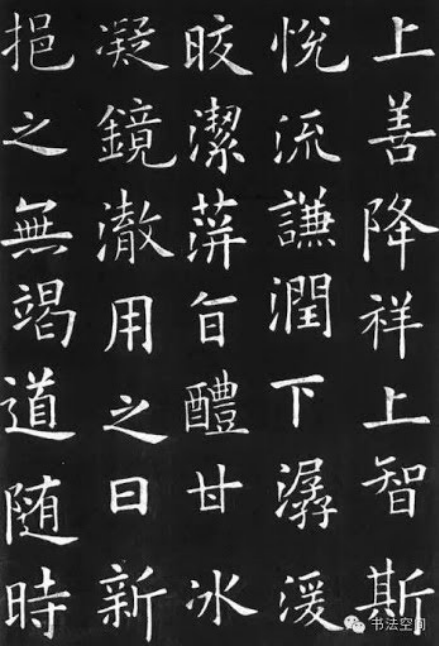 上善降祥上智斯
悅流謙潤下潺湲
晈潔蓱旨醴甘冰
凝鏡澈用之日新
挹之無竭道随時
书法空间